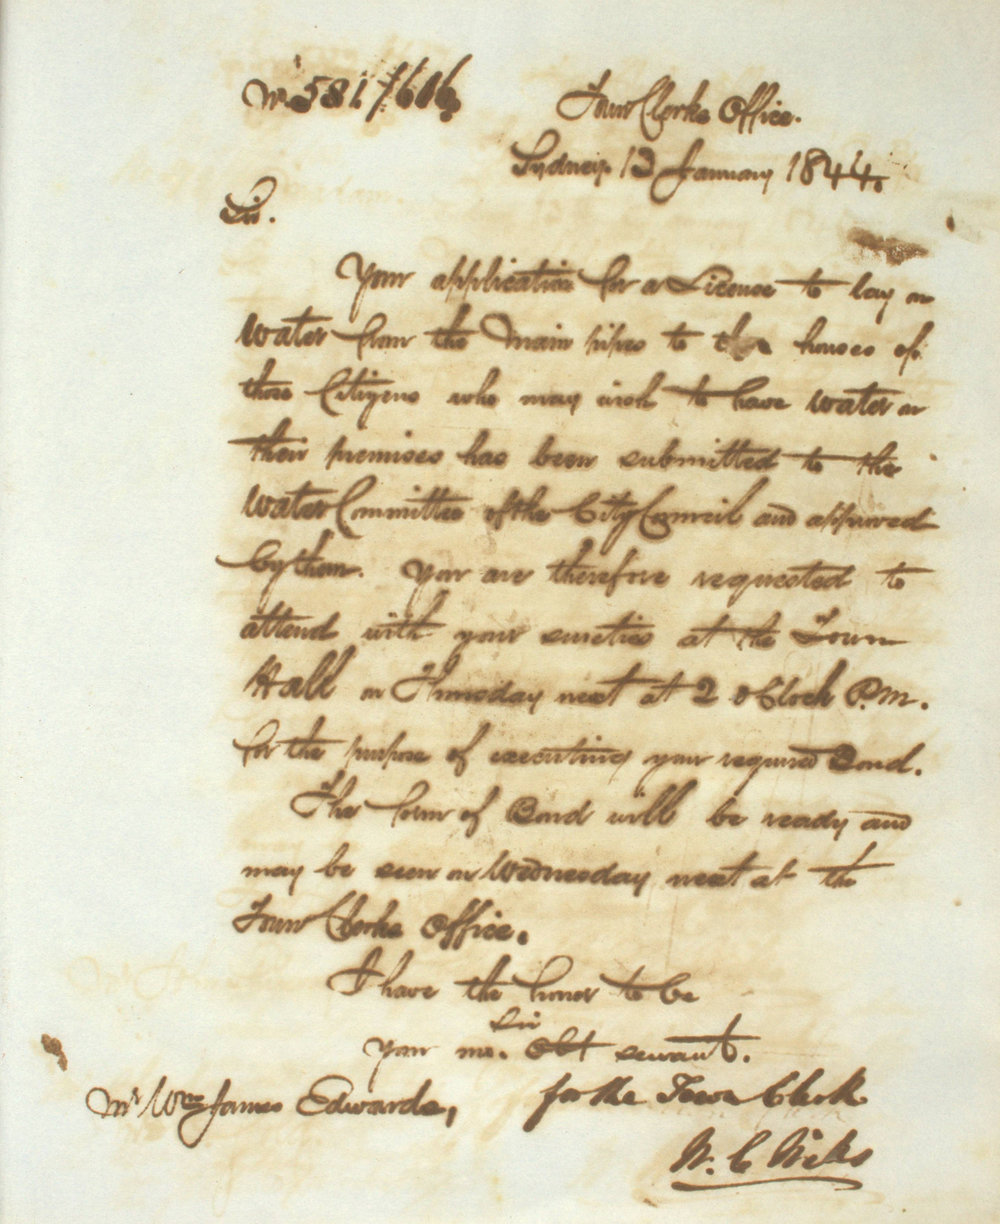 No. 581/606
Town Clerks Office.
Sydney. 13 January 1844.
Sir.
Your application for a License to lay on
Water from the Main pipes to the houses of
those Citizens who may wish to have water on
their premises has been submitted to the
Water Committee of the City Council and approved
by them. You are therefore requested to
attend with your sureties at the Town
Hall on Thursday next at 2 oClock P.M.
for the purpose of executing your required Bond.
The form of Bond will be ready and
may be seen on Wednesday next at the
Town Clerks Office.
I have the honor to be
Sir
Your mo. Obt servant.
for the Town Clerk
Mr Wm James Edwards,